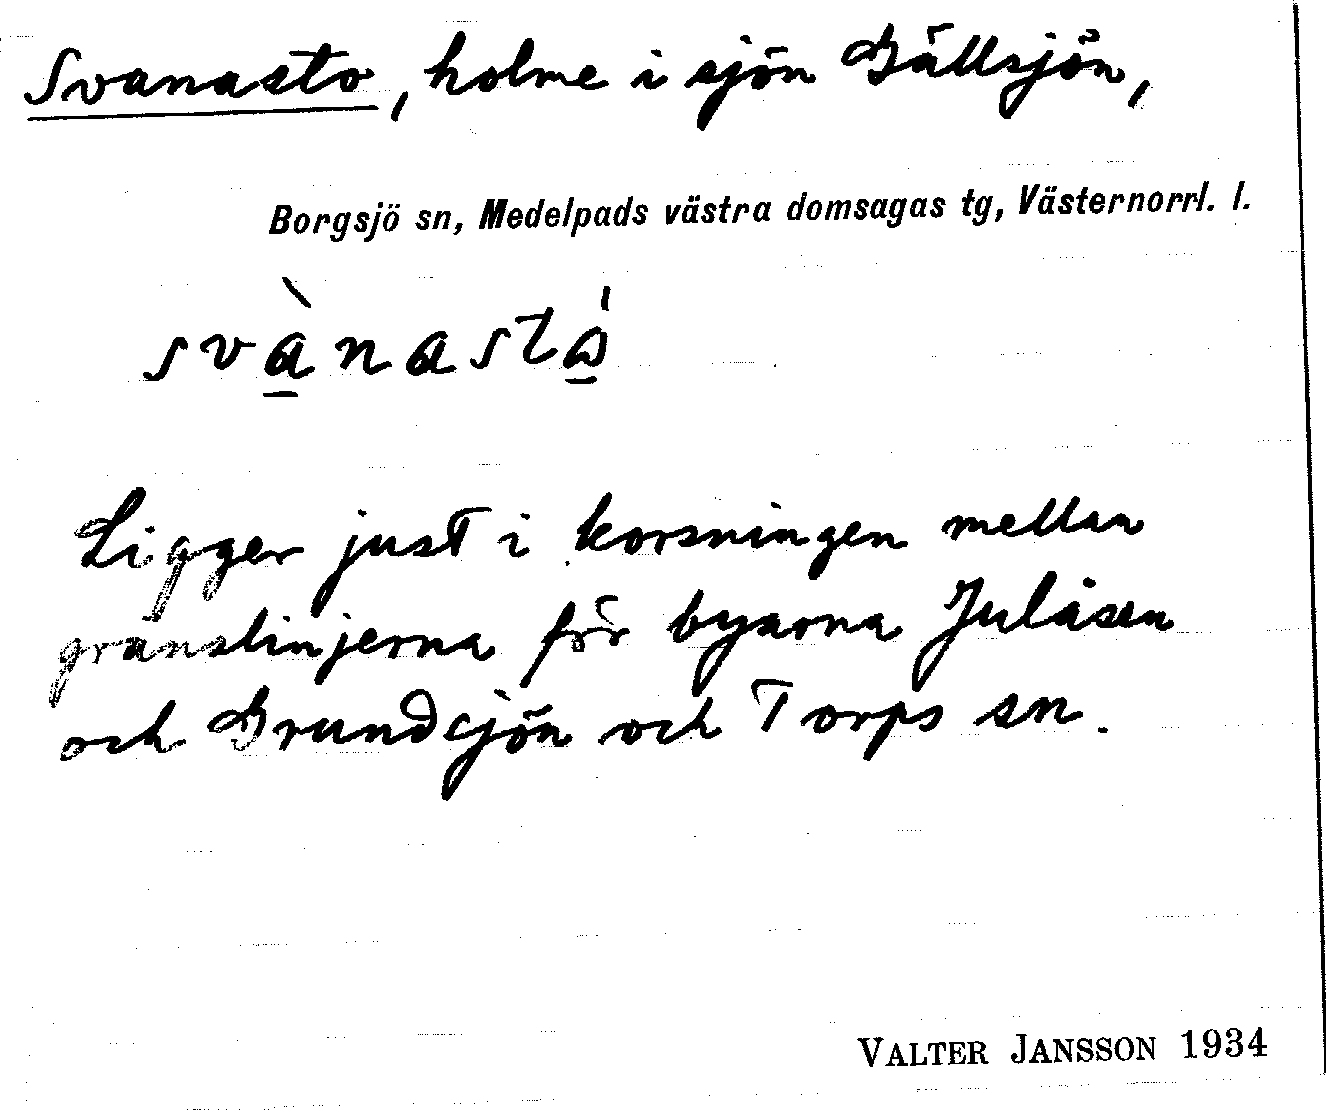 Svanasto, holme i sjön Gällsjön,
Borgsjö sn, Medelpads västra domsagas tg, Västernorrl. l.
svànastó
Ligger just i korsningen mellan
gränslinjerna för byarna Julåsen
och Grundsjön och Torps sn.
VALTER JANSSON 1934